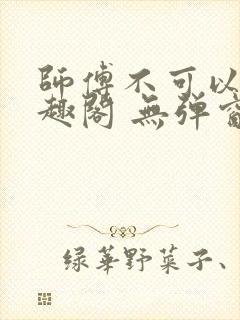 師傅不可以
趣閣 無弹窗
绿華野菜子、